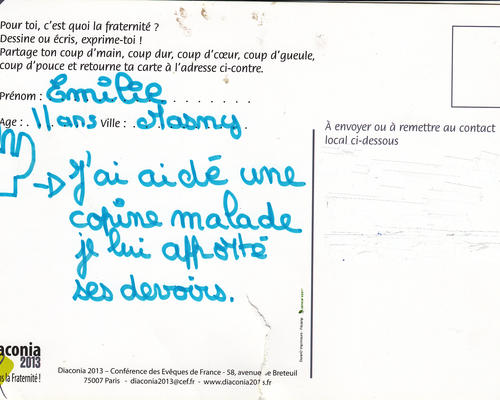 Pour toi, c'est quoi la fraternité ?
Dessine ou écris, exprime-toi !
Partage ton coup d'main, coup dur, coup d'cœur, coup d'gueule,
coup d'pouce et retourne ta carte à l'adresse ci-contre.
Prénom : Emilie
Age : 11 ans Ville : Gasny
À envoyer ou à remettre au contact
local ci-dessous
J'ai aidé une
copine malade
je lui apporté
ses devoirs.
aconia
2013
la Fraternité !
Diaconia 2013 – Conférence des Evêques de France - 58, avenue de Breteuil
75007 Paris - diaconia2013@cef.fr - www.diaconia2013.fr